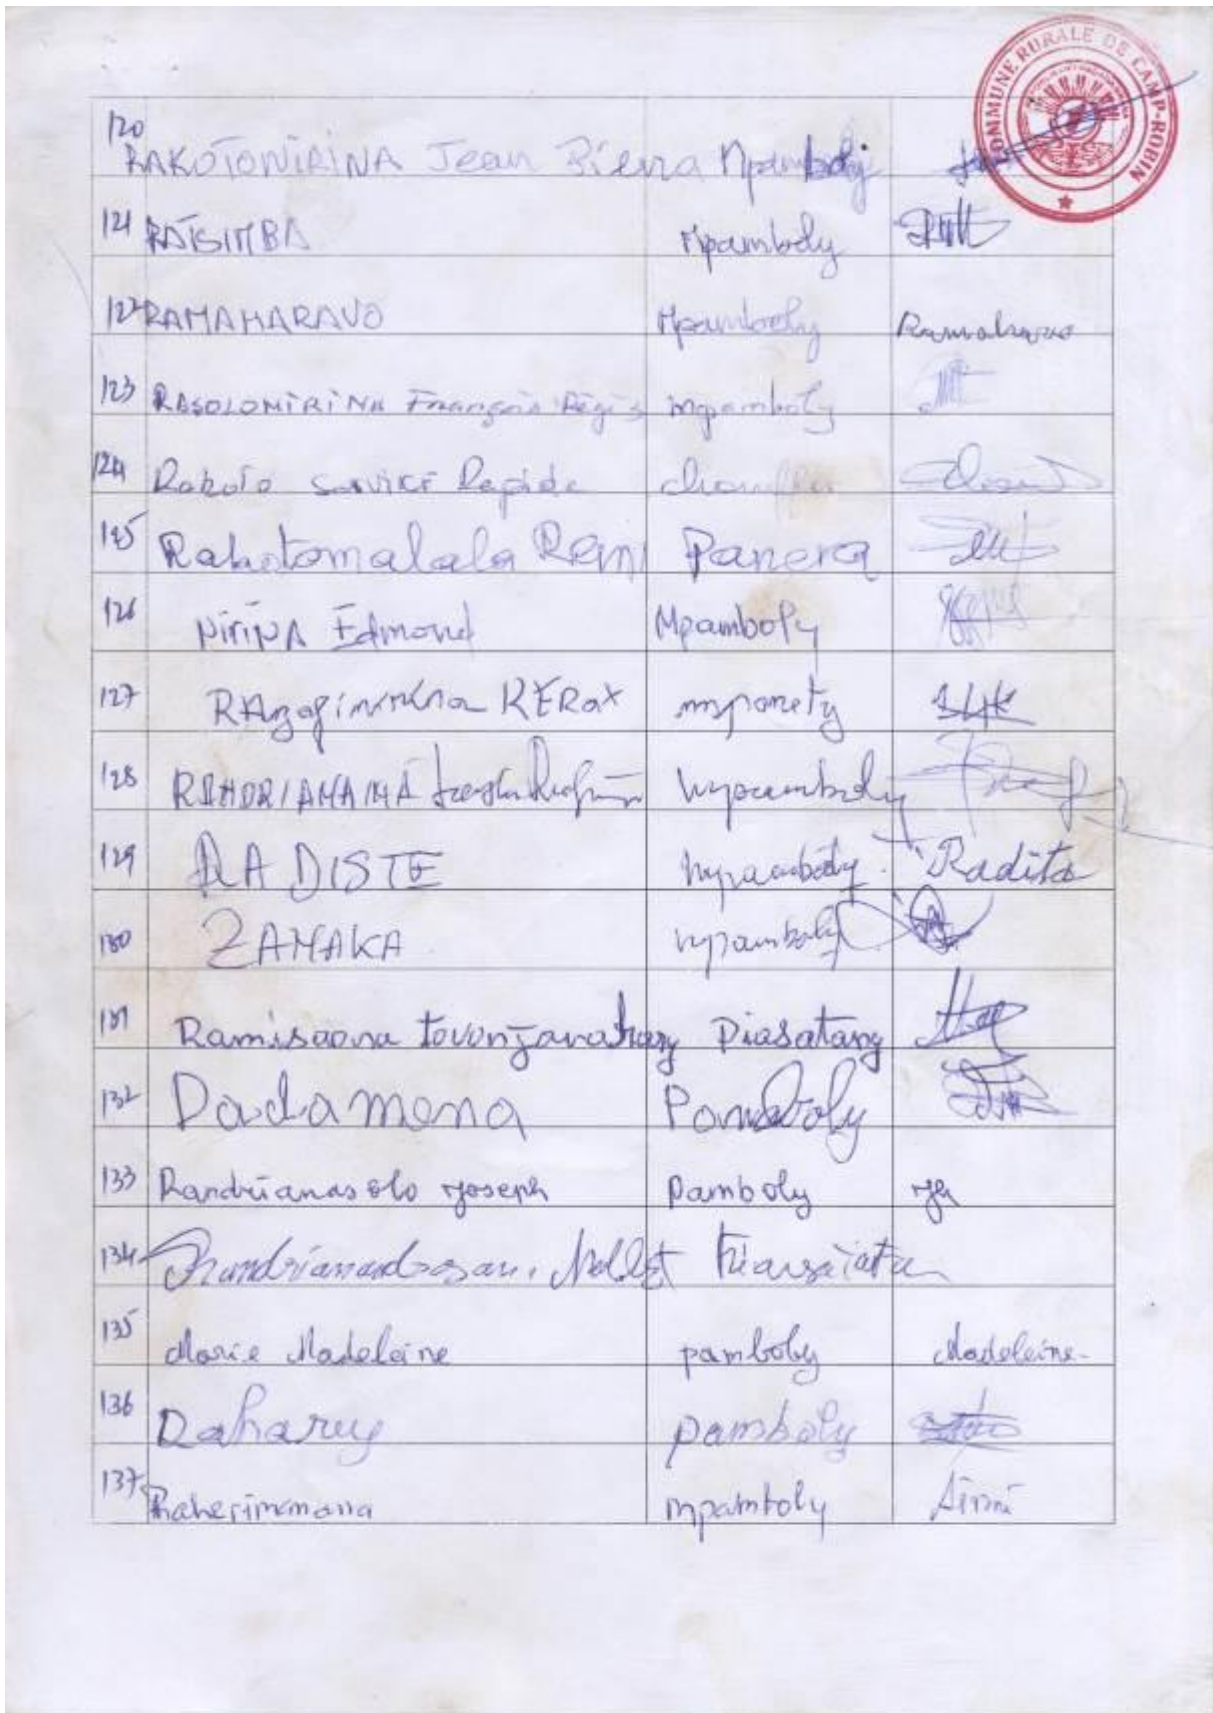 COMMUNE RURALE DE CAMP-ROBIN
120 RAKOTONIRINA Jean Pierra Mpamboly
121 RATSIMBA Mpamboly
122 RAMAHARAVO Mpamboly Ramaharavo
123 RASOLOMIRINA François Régis mpamboly
124 Rakoto service Rapide
125 Rakotomalala Remi Panera
126 NIRINA Edmond Mpamboly
127 mpanety
128 mpamboly
129 RADISTE mpamboly Radita
130 ZAMAKA mpamboly
131 Ramisaona tovonjanahary Piasatany
132 Dadamena Pamboly
133 Randrianasolo Joseph Pamboly
134
135 Marie Madeleine pamboly Madeleine
136 Daharuy pamboly
137 Raherimanana mpamboly